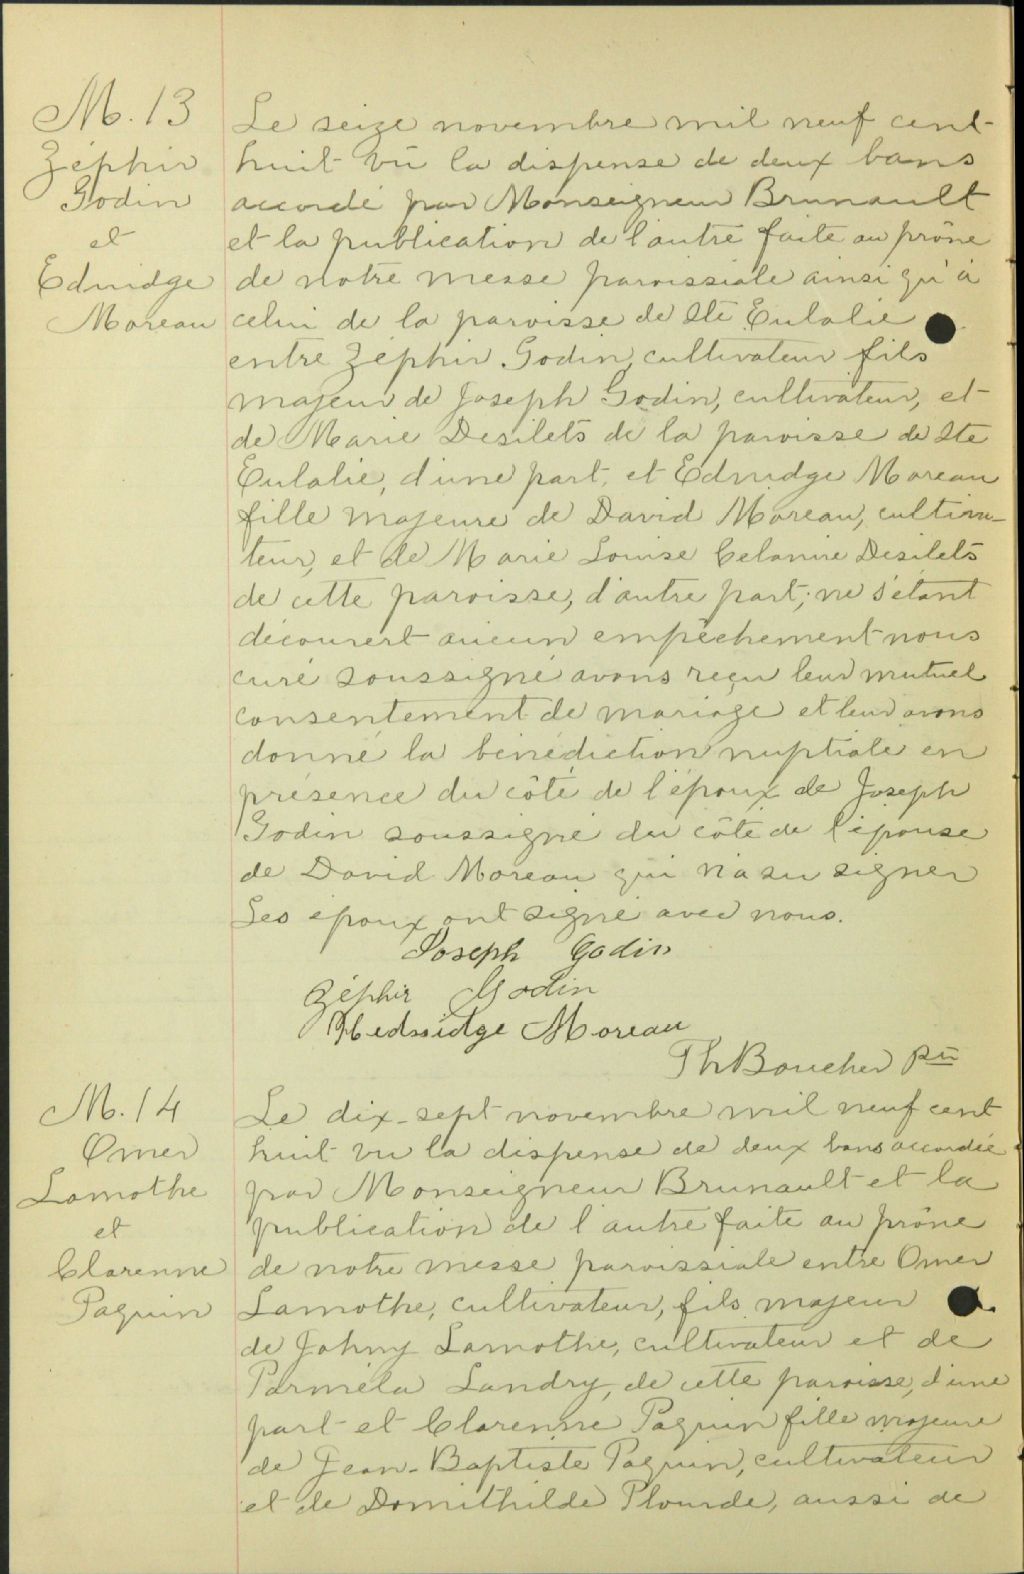 M. 13
Zéphir
Godin
et
Edwidge
Moreau
Le seize novembre mil neuf cent
huit vû la dispense de deux bans
accordé par Monseigneur Brunault
et la publication de l'autre faite au prône
de notre messe paroissiale ainsi qu'à
celui de la paroisse de Ste Eulalie
entre Zéphir Godin, cultivateur fils
majeur de Joseph Godin, cultivateur, et
de Marie Desilets de la paroisse de Ste
Eulalie, d'une part, et Edwidge Moreau
fille majeure de David Moreau, cultiva-
teur, et de Marie Louise Celanire Desilets
de cette paroisse, d'autre part; ne s'étant
découvert aucun empêchement nous
curé soussigné avons reçu leur mutuel
consentement de mariage et leur avons
donné la bénédiction nuptiale en
présence du côté de l'époux de Joseph
Godin soussigné du côté de l'épouse
de David Moreau qui n'a su signer
Les époux ont signé avec nous.
Joseph Godin
Zéphir Godin
Hedwidge Moreau
Th Boucher ptre
M. 14
Omer
Lamothe
et
Clarenne
Paquin
Le dix-sept novembre mil neuf cent
huit vu la dispense de deux bans accordée
par Monseigneur Brunault et la
publication de l'autre faite au prône
de notre messe paroissiale entre Omer
Lamothe, cultivateur, fils majeur
de Johny Lamothe, cultivateur et de
Parméla Landry, de cette paroisse, d'une
part et Clarenne Paquin fille majeure
de Jean-Baptiste Paquin, cultivateur
et de Domithilde Plourde, aussi de